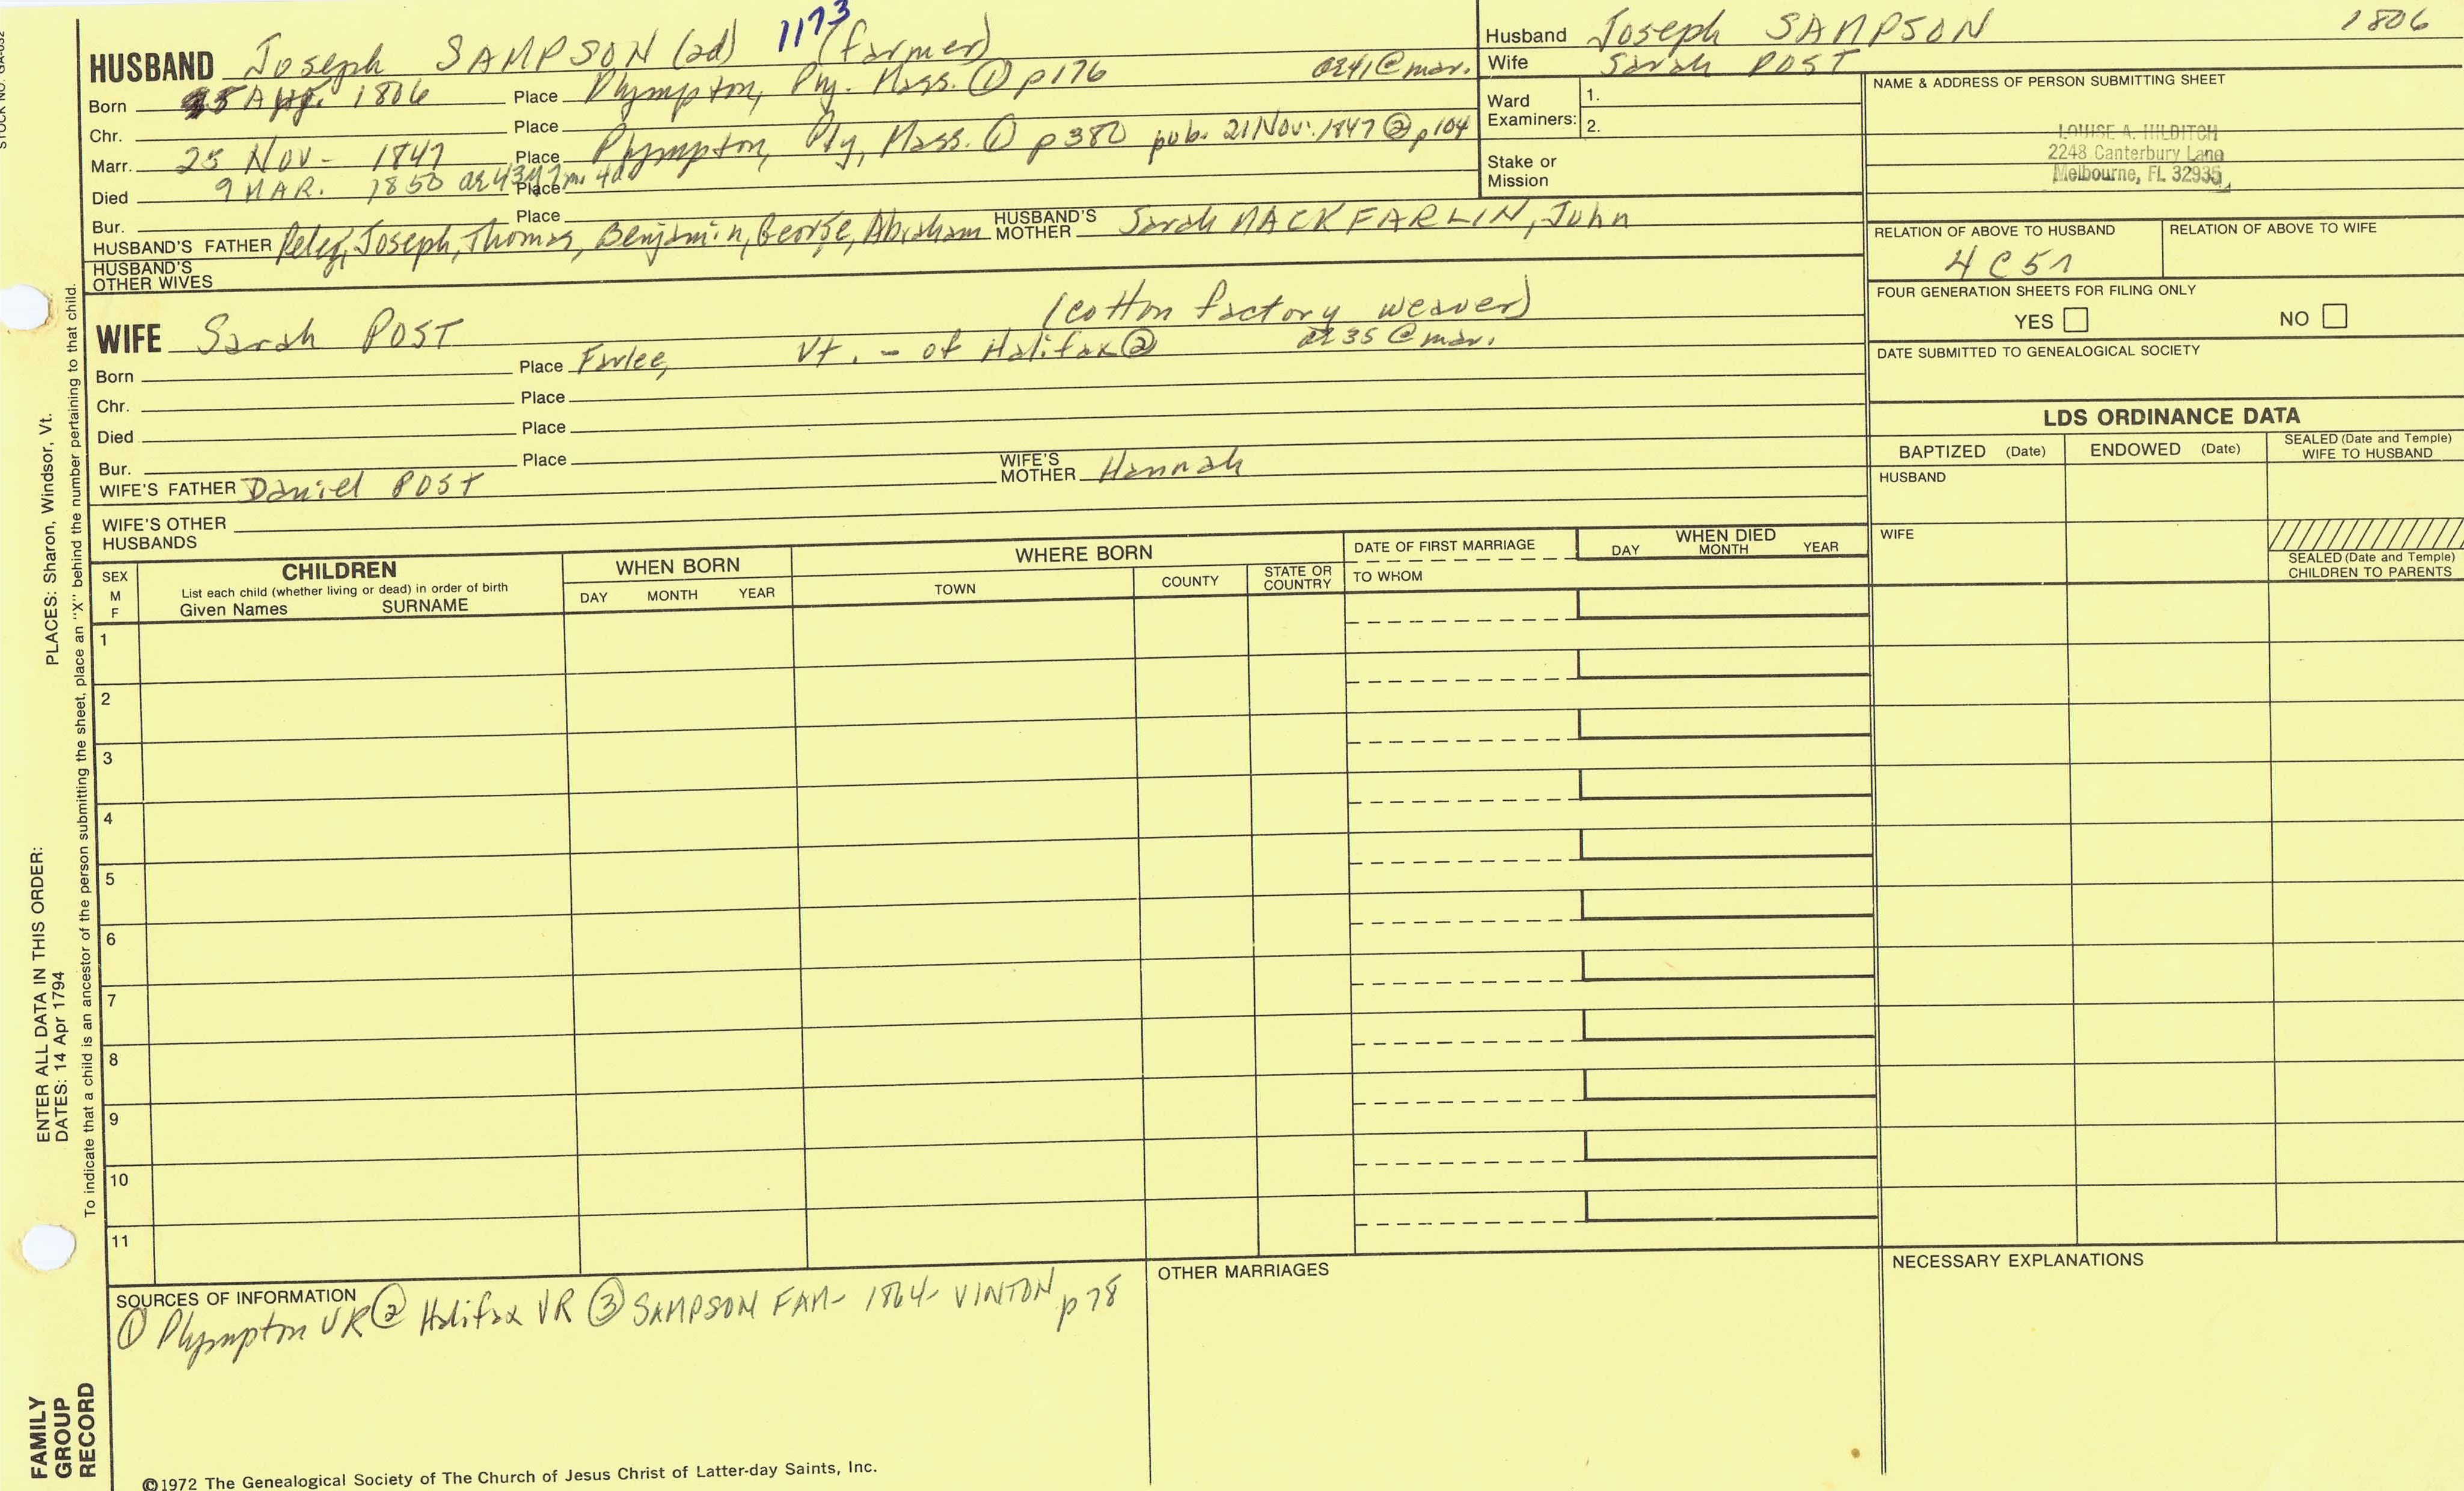 STOCK NO. GA-032
HUSBAND Joseph SAMPSON (ad) 1173 (farmer)
Born 1806 Place Plympton, Ply. Mass. ① p176 ae41@mar.
Chr. Place
Marr. 25 Nov - 1847 Place Plympton, Ply, Mass. ① p380 pub. 21 Nov. 1847 ② p104
Died 9 MAR. 1850 ae 43y 7m 4d Place
Bur. Place
HUSBAND'S FATHER Peleg, Joseph, Thomas, Benjamin, George, Abraham HUSBAND'S MOTHER Sarah MACKFARLIN, John
HUSBAND'S OTHER WIVES
WIFE Sarah POST (cotton factory weaver)
Born Place Vt. - of Halifax ② ae 35 @ mar.
Chr. Place
Died Place
Bur. Place
WIFE'S FATHER Daniel POST WIFE'S MOTHER Hannah
WIFE'S OTHER HUSBANDS
Husband Joseph SAMPSON 1806
Wife Sarah POST
Ward Examiners: 1.
2.
Stake or Mission
NAME & ADDRESS OF PERSON SUBMITTING SHEET
LOUISE A. HILDITCH
2248 Canterbury Lane
Melbourne, FL 32935
RELATION OF ABOVE TO HUSBAND RELATION OF ABOVE TO WIFE
4C5r
FOUR GENERATION SHEETS FOR FILING ONLY
YES NO
DATE SUBMITTED TO GENEALOGICAL SOCIETY
LDS ORDINANCE DATA
BAPTIZED (Date) ENDOWED (Date) SEALED (Date and Temple) WIFE TO HUSBAND
HUSBAND
WIFE
SEALED (Date and Temple) CHILDREN TO PARENTS
SEX M F
CHILDREN
List each child (whether living or dead) in order of birth
Given Names SURNAME
WHEN BORN
DAY MONTH YEAR
WHERE BORN
TOWN COUNTY STATE OR COUNTRY
DATE OF FIRST MARRIAGE
TO WHOM
WHEN DIED
DAY MONTH YEAR
1
2
3
4
5
6
7
8
9
10
11
SOURCES OF INFORMATION
① Plympton VR ② Halifax VR ③ SAMPSON FAM- 1864- VINTON p78
OTHER MARRIAGES
NECESSARY EXPLANATIONS
©1972 The Genealogical Society of The Church of Jesus Christ of Latter-day Saints, Inc.
FAMILY GROUP RECORD
ENTER ALL DATA IN THIS ORDER:
DATES: 14 Apr 1794
PLACES: Sharon, Windsor, Vt.
To indicate that a child is an ancestor of the person submitting the sheet, place an "X" behind the number pertaining to that child.